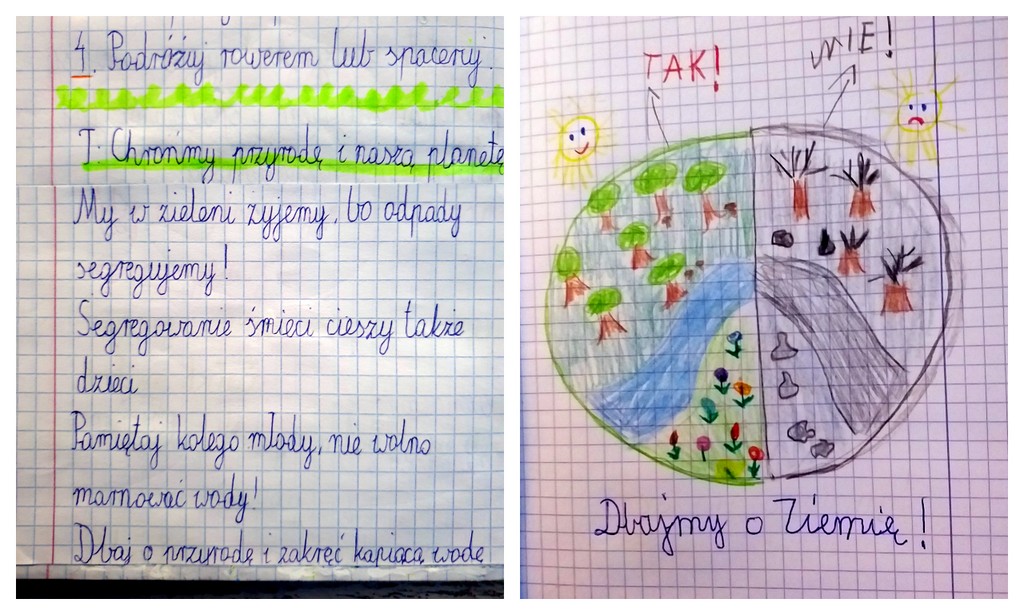 4. Podróżuj rowerem lub spaceruj.
T: Chrońmy przyrodę i naszą planetę
My w zieleni żyjemy, bo odpady
segregujemy!
Segregowanie śmieci cieszy także
dzieci
Pamiętaj kolego młody, nie wolno
marnować wody!
Dbaj o przyrodę i zakręć kapiącą wodę
TAK!
NIE!
Dbajmy o Ziemię!